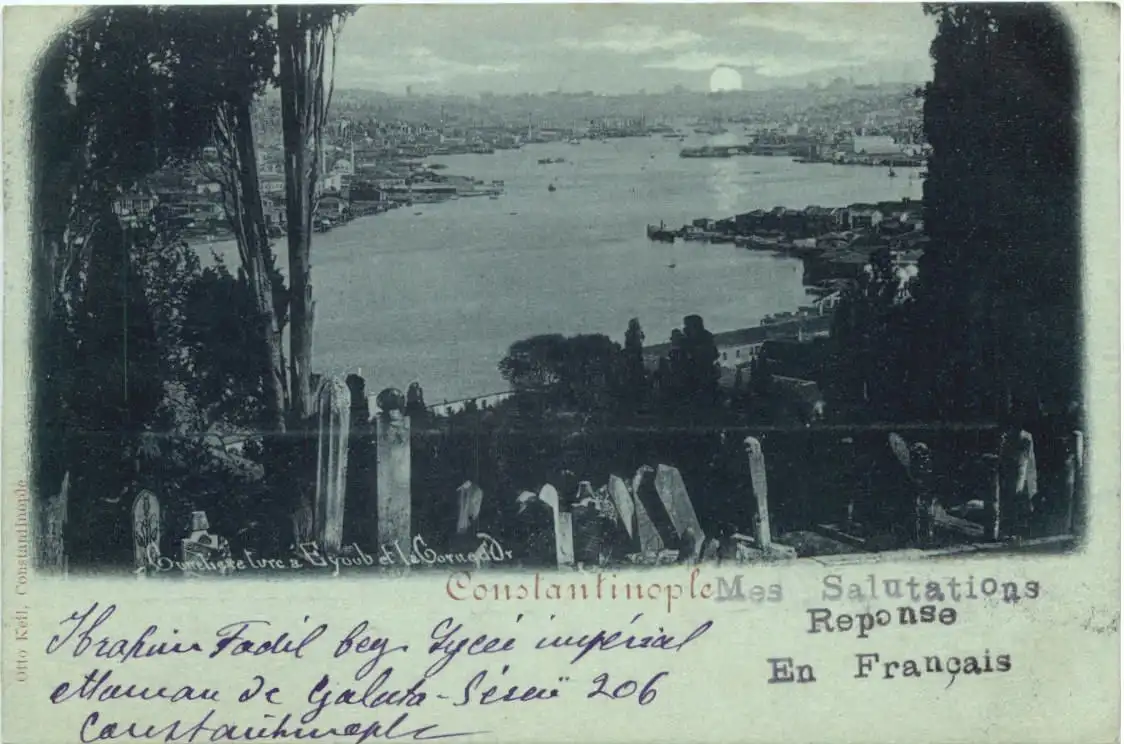 Cimetière turc à Eyoub et la Corne d'Or
Constantinople
Mes Salutations
Reponse
En Français
Ibrahim Fadil bey. Lycée impérial
ottoman de Galata-Séraï 206
Constantinople
Otto Keil, Constantinople